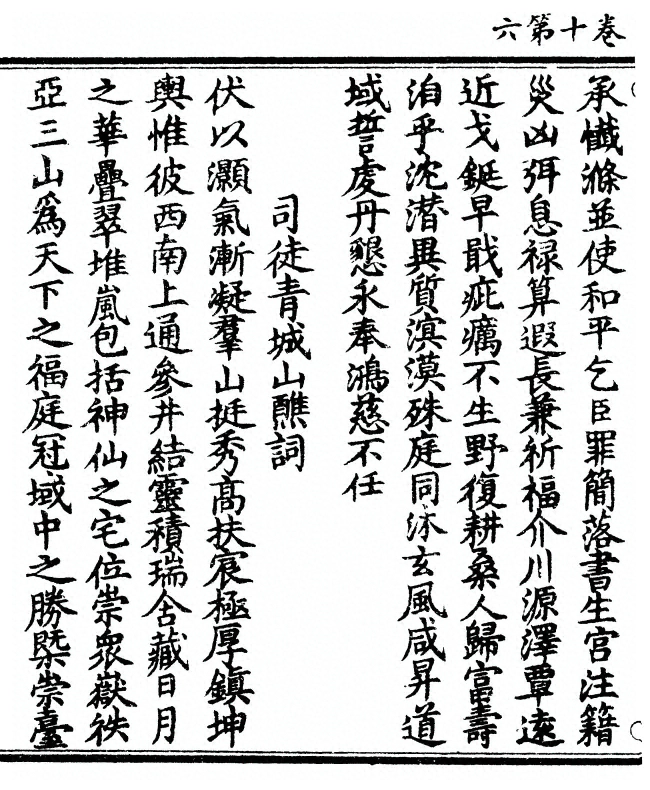 卷十第六
承懺滌並使和平乞臣罪簡落書生宫注籍
災凶弭息禄算遐長兼祈福介川源澤覃遠
近戈鋋早戢疵癘不生野復耕桑人歸富壽
洎乎沈潜異質溟漠殊庭同沐玄風咸昇道
域誓虔丹懇永奉鴻慈不任
司徒青城山醮詞
伏以灝氣漸凝羣山挺秀高扶宸極厚鎮坤
輿惟彼西南上通參井結靈積瑞含藏日月
之華疊翠堆嵐包括神仙之宅位崇衆嶽秩
亞三山爲天下之福庭冠域中之勝槩崇臺